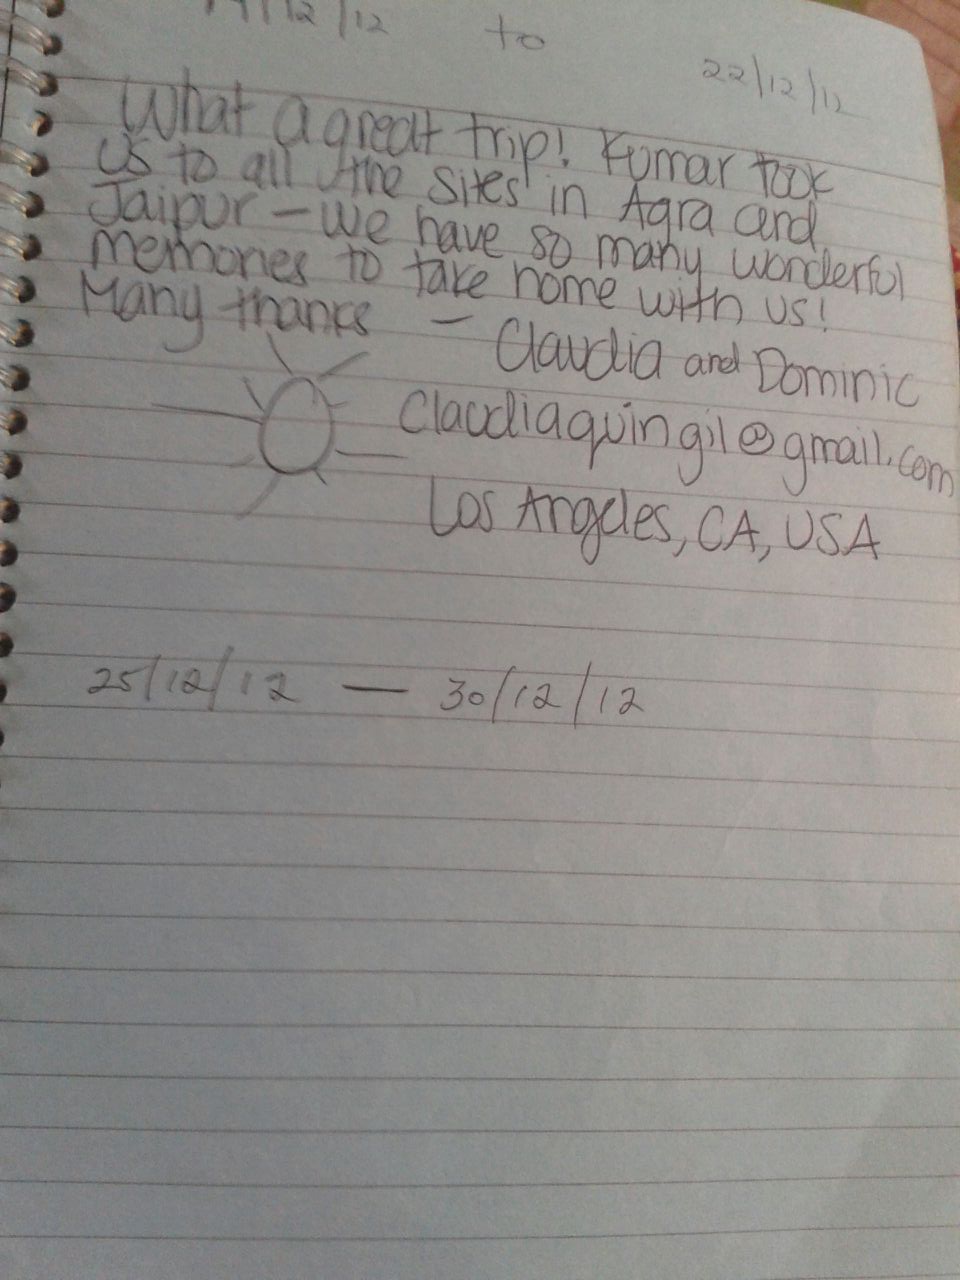 /12/12 to
22/12/12
What a great trip! Kumar took
us to all the sites in Agra and
Jaipur - we have so many wonderful
memories to take home with us!
Many thanks -
Claudia and Dominic
Claudiaquingil@gmail.com
Los Angeles, CA, USA
25/12/12 — 30/12/12